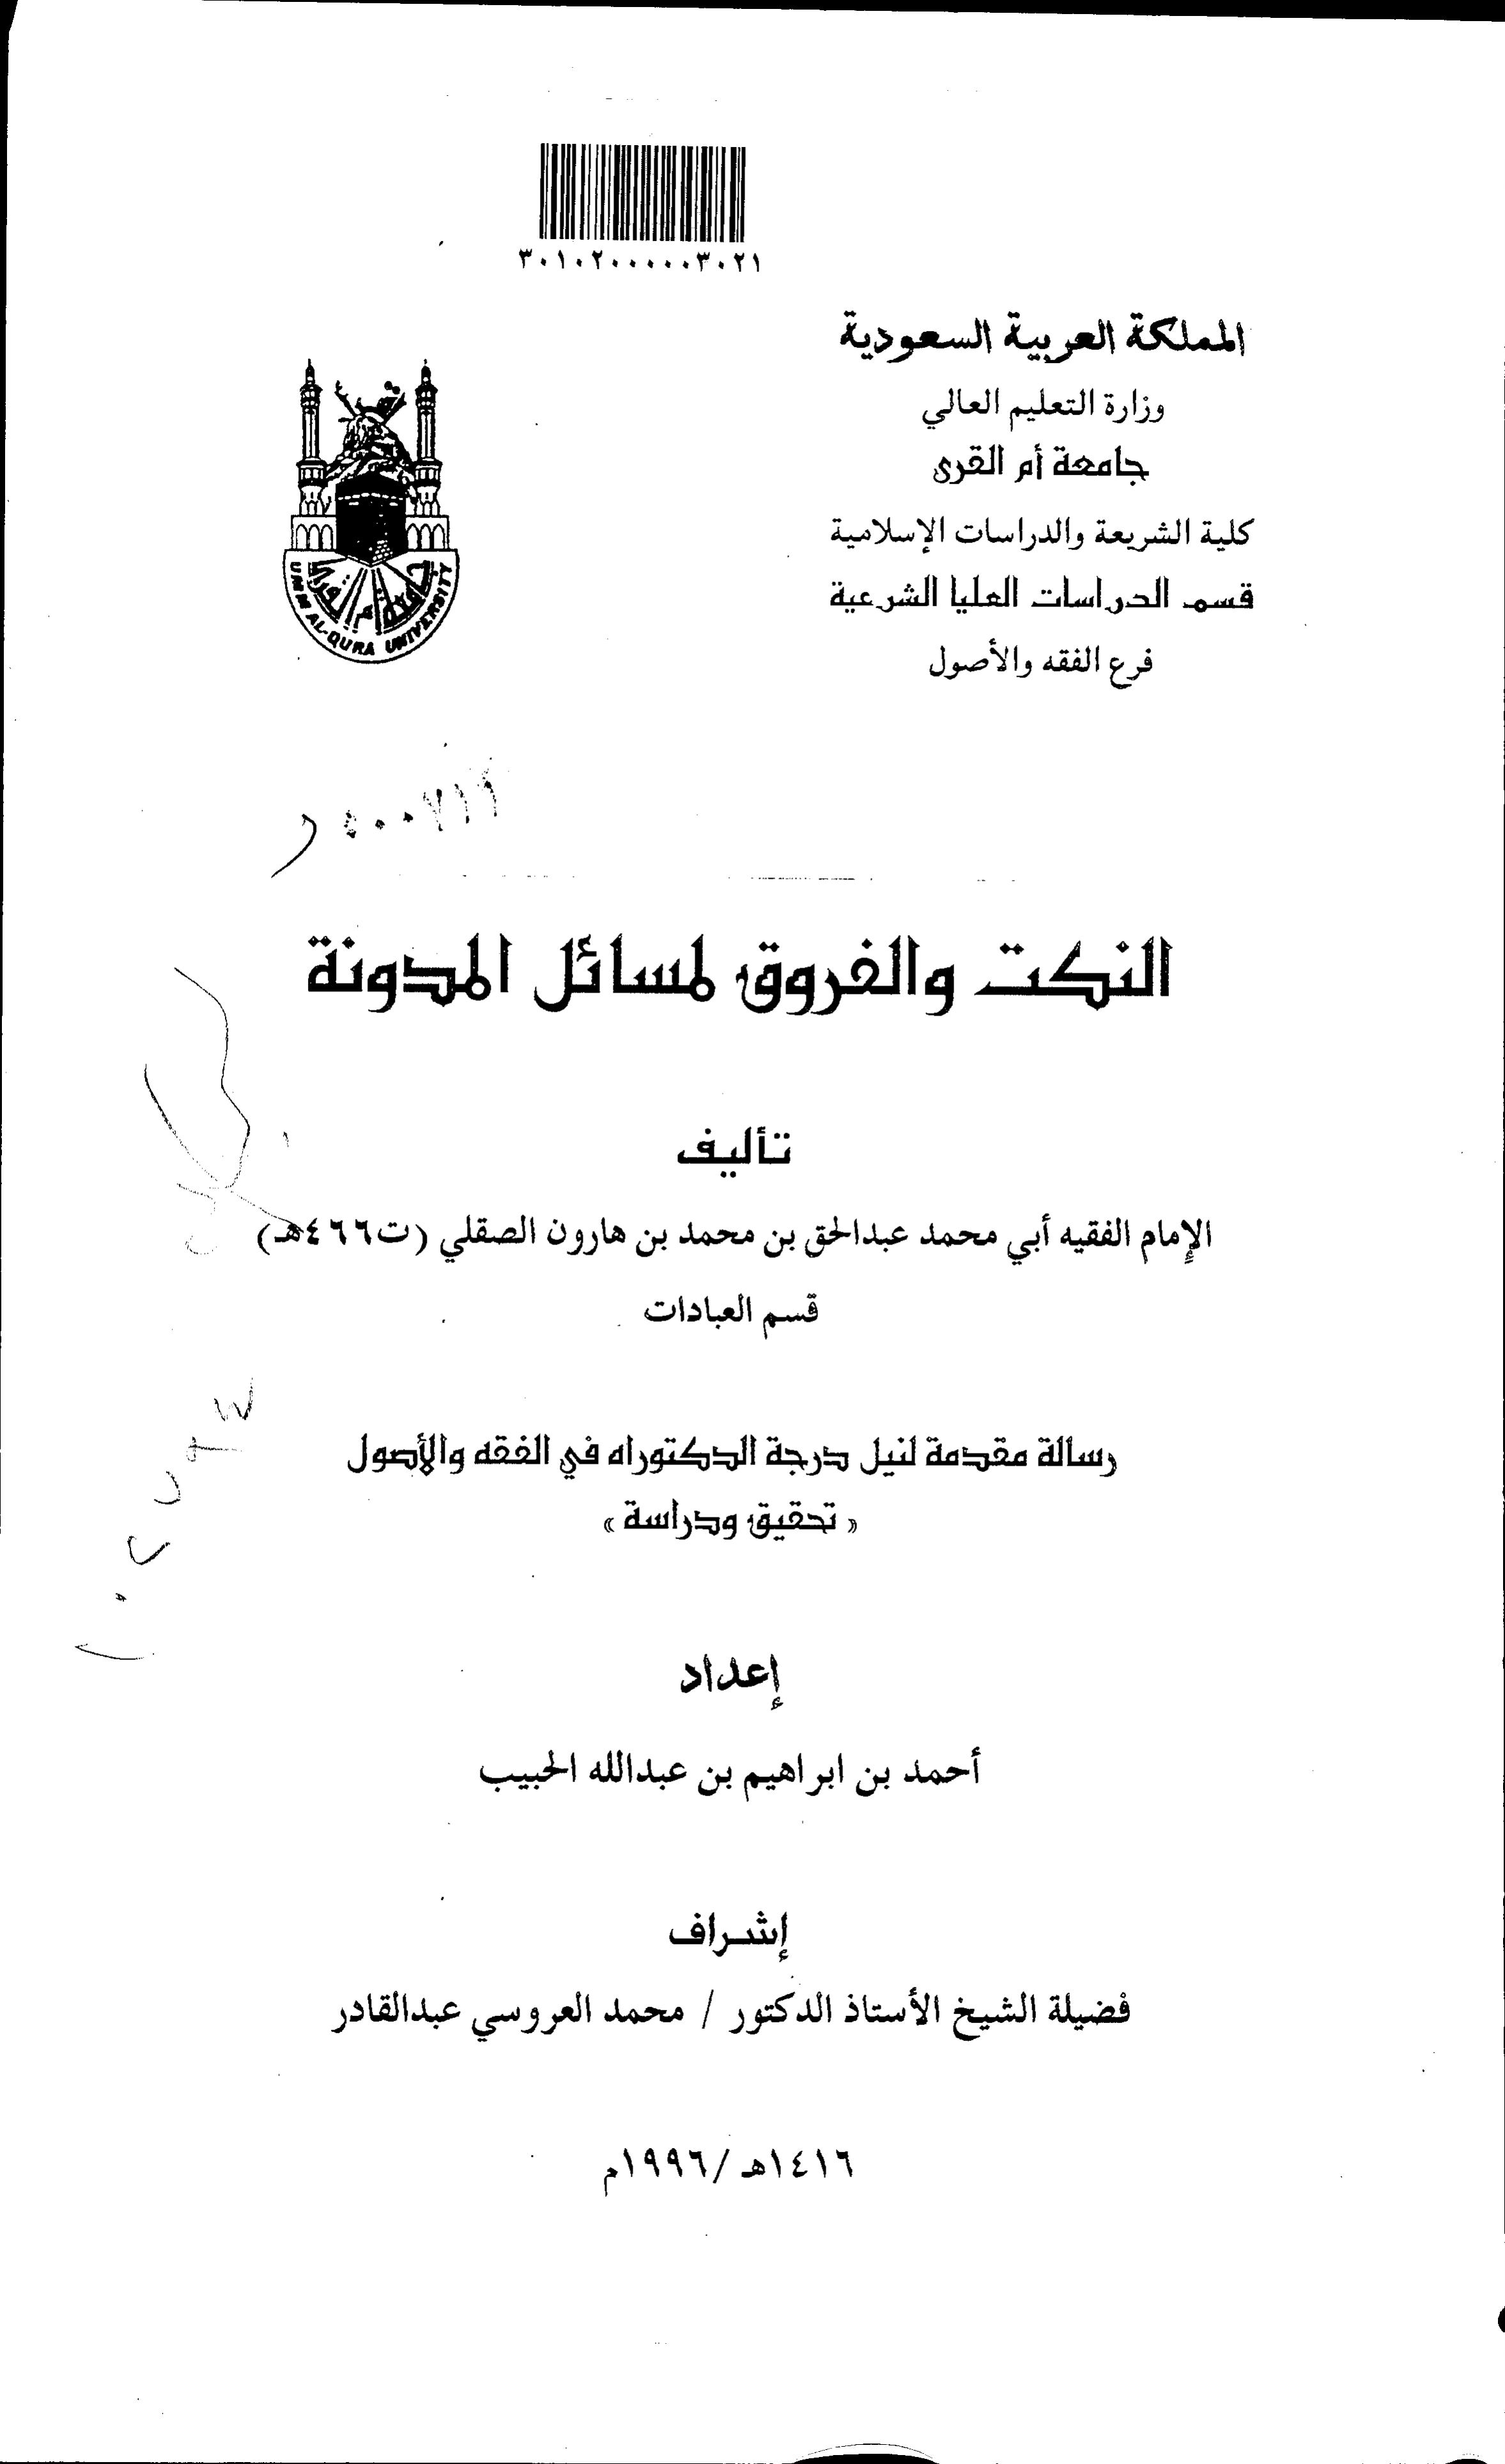 ٣٠١٠٢٠٠٠٠٠٣٠٢١
المملكة العربية السعودية
وزارة التعليم العالي
جامعة أم القرى
كلية الشريعة والدراسات الإسلامية
قسم الدراسات العليا الشرعية
فرع الفقه والأصول
UMM AL-QURA UNIVERSITY
النكت والفروق لمسائل المدونة
تأليف
الإمام الفقيه أبي محمد عبدالحق بن محمد بن هارون الصقلي (ت٤٦٦هـ)
قسم العبادات
رسالة مقدمة لنيل درجة الدكتوراه في الفقه والأصول
« تحقيق ودراسة »
إعداد
أحمد بن ابراهيم بن عبدالله الحبيب
إشراف
فضيلة الشيخ الأستاذ الدكتور / محمد العروسي عبدالقادر
١٤١٦هـ /١٩٩٦م